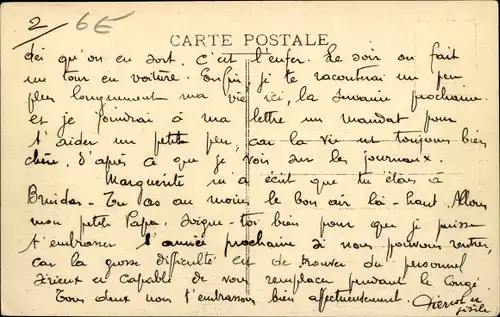 2/ 6E
CARTE POSTALE
dès qu'on en sort, c'est l'enfer. Le soir on fait
un tour en voiture. Enfin, je te raconterai un peu
plus longuement ma vie ici, la semaine prochaine
et je joindrai à ma lettre un mandat pour
t'aider un petit peu, car la vie est toujours bien
chère, d'après ce que je vois sur les journaux.
Marguerite m'a écrit que tu étais à
Tu as au moins le bon air là-haut. Allons
mon petit Papa, soigne-toi bien pour que je puisse
t'embrasser l'année prochaine si nous pouvons rentrer,
car la grosse difficulté est de trouver du personnel
sérieux et capable de vous remplacer pendant le congé.
Tous deux nous t'embrassons bien affectueusement.